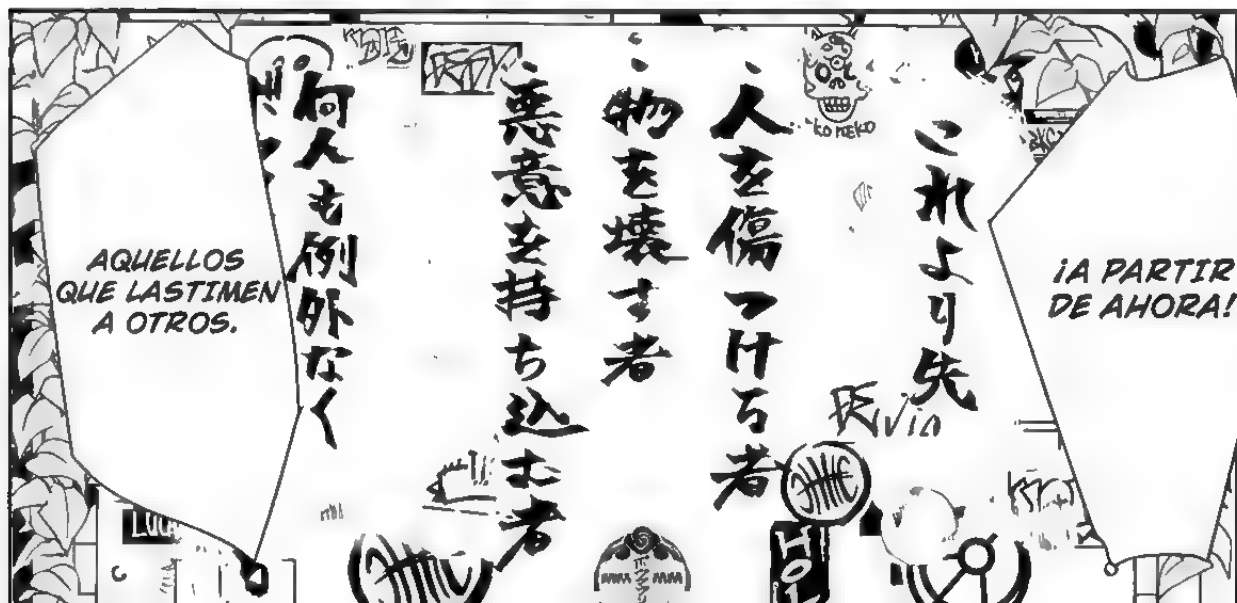 ¡A PARTIR
DE AHORA!
これより先
・人を傷つける者
・物を壊す者
・悪意を持ち込む者
何人も例外なく
AQUELLOS
QUE LASTIMEN
A OTROS.
KONEKO